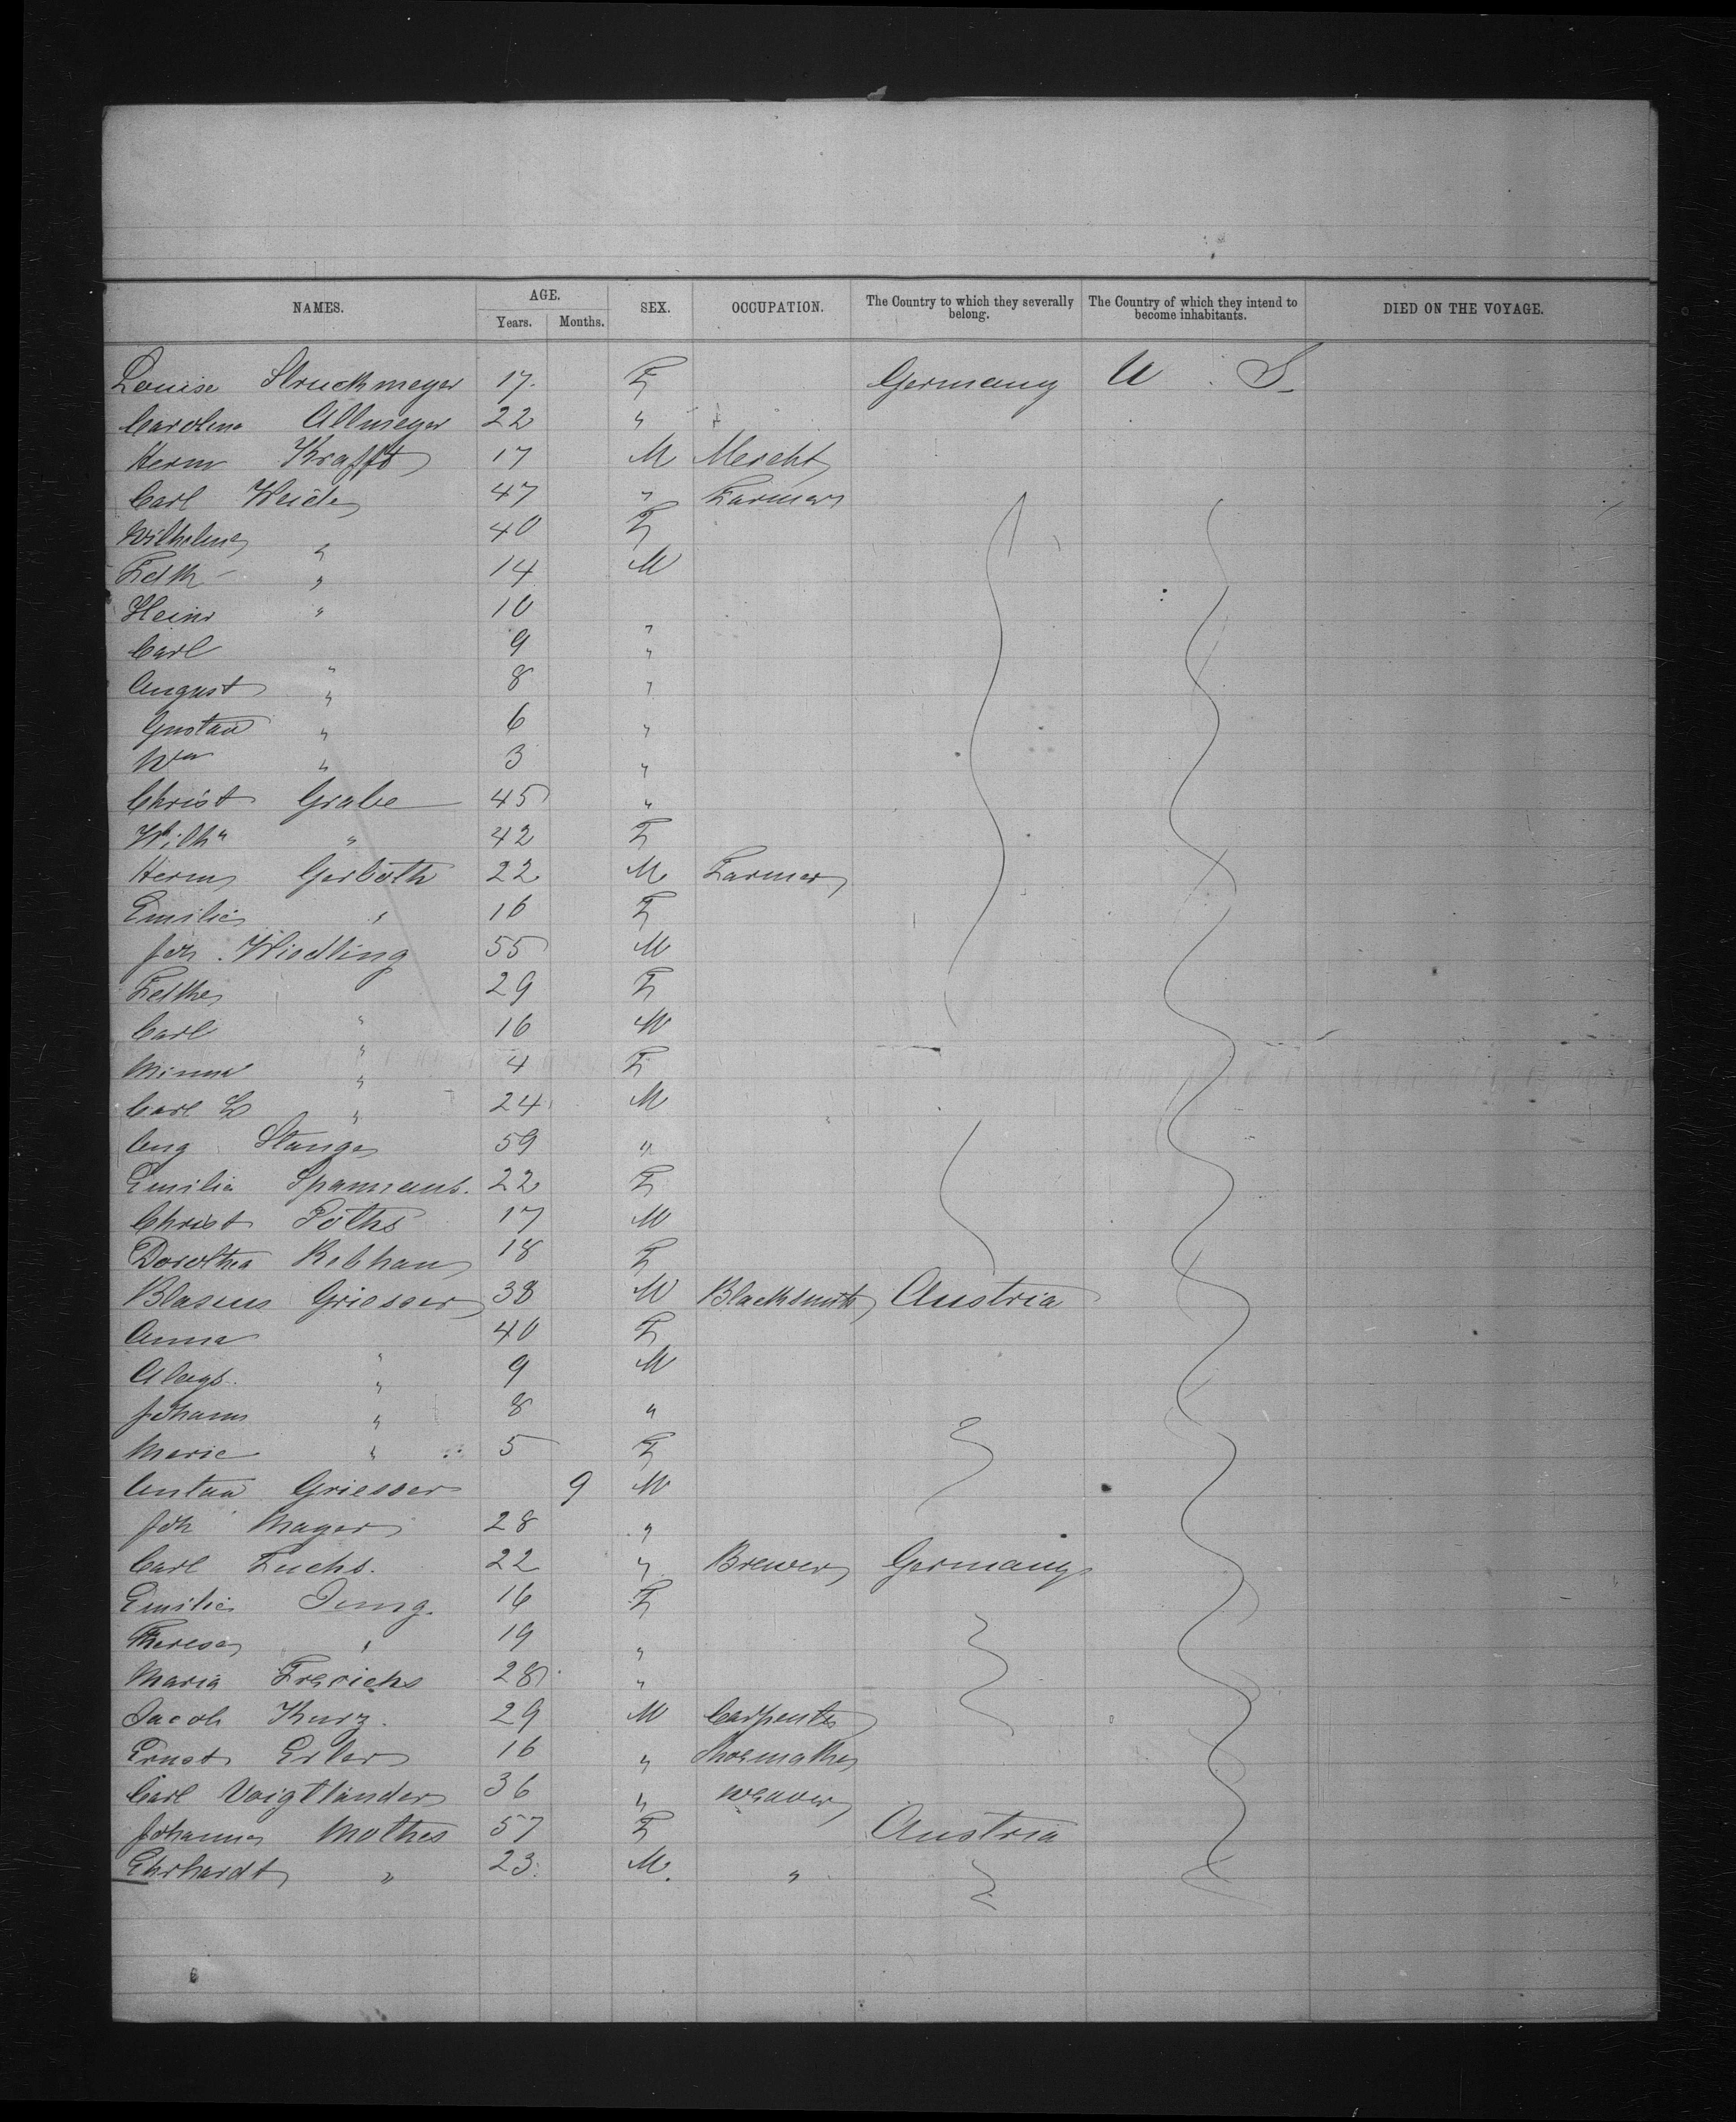 NAMES. AGE. SEX. OCCUPATION. The Country to which they severally belong. The Country of which they intend to become inhabitants. DIED ON THE VOYAGE.
Years. Months.
Louise Struckmeyer 17. F Germany U. S.
Carolina Allmeyer 22 "
Herm Krafft 17 M Mercht
Carl Weide 47 " Farmer
Wilhelme " 40 F
Fedk " 14 M
Heinr " 10 "
Carl " 9 "
August " 8 "
Gustav " 6 "
Wm " 3 "
Christ Grabe 45 "
Wilhe " 42 F
Herm Gerboth 22 M Farmer
Emilie " 16 F
Joh Wiedling 55 M
Fedke " 29 F
Carl " 16 M
Minna " 4 F
Carl L " 24 M
Aug Stange 59 "
Emilia 22 F
Christ Poths 17 M
Dorothea Rebhan 18 F
Blasius Griesser 38 M Blacksmith Austria
Anna " 40 F
Aloys. " 9 M
Johann " 8 "
Marie " 5 F
Anton Griesser 9 M
Joh Mayer 28 "
Carl Fuchs. 22 " Brewer Germany
Emilie Jung. 16 F
Therese " 19 "
Maria Frerichs 28 "
Jacob Kurz. 29 M Carpenter
Ernst Erler 16 " Shoemaker
Carl Voigtländer 36 " weaver
Johanna Mothes 57 F Austria
Ehrhardt " 23. M. "